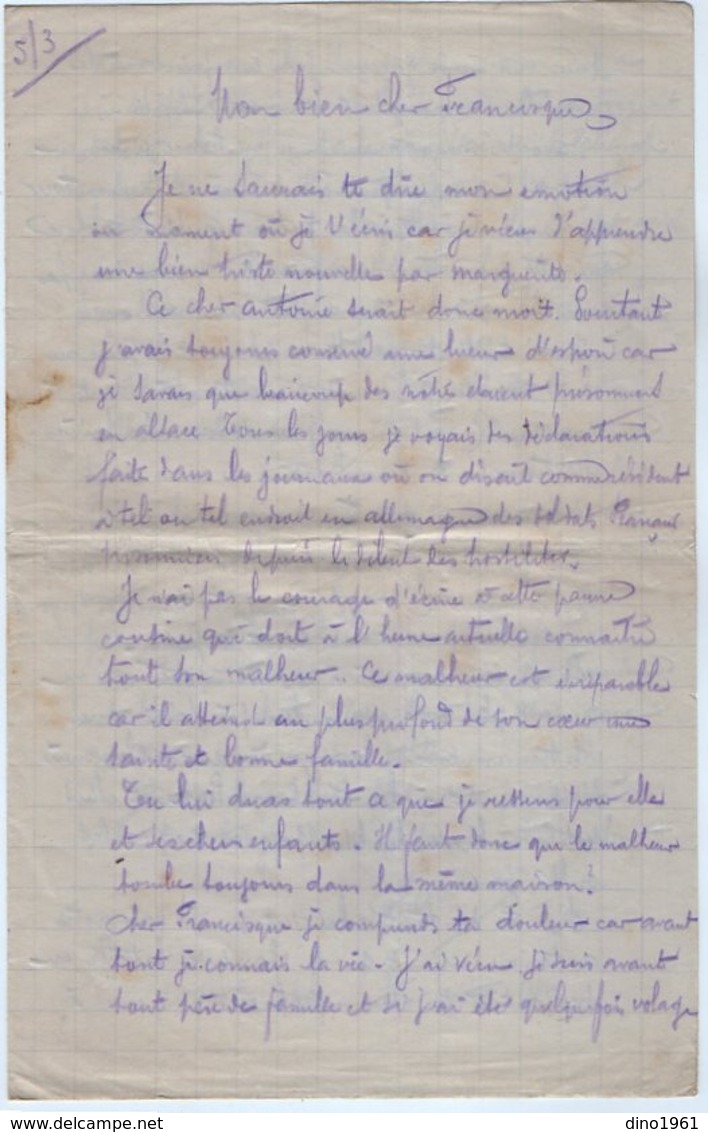 5/3
Mon bien cher Francisque
Je ne saurais te dire mon emotion
au moment où je t'écris car je viens d'apprendre
une bien triste nouvelle par marguerite.
Ce cher antoine serait donc mort. Pourtant
j'avais toujours conservé une lueur d'espoir car
je savais que beaucoup des notre étaient prisonniers
en alsace Tous les jours je voyais des déclarations
faite dans les journaux où on disait comme résident
à tel ou tel endroit en allemagne des soldats français
prisonniers depuis le début des hostilités.
Je n'ai pas le courage d'écrire à cette pauvre
cousine qui doit à l'heure actuelle connaitre
tout son malheur. Ce malheur est irréparable
car il atteint au plus profond de son cœur une
sainte et bonne famille.
Tu lui diras tout ce que je ressens pour elle
et ses chers enfants. Il faut donc que le malheur
tombe toujours dans la même maison?
Cher Francisque je comprends ta douleur car avant
tout je connais la vie. J'ai vécu je suis avant
tout père de famille et si j'ai été quelquefois volage
delcampe.net
dino1961